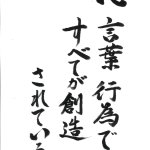 言葉 行為で
すべてが創造
されている